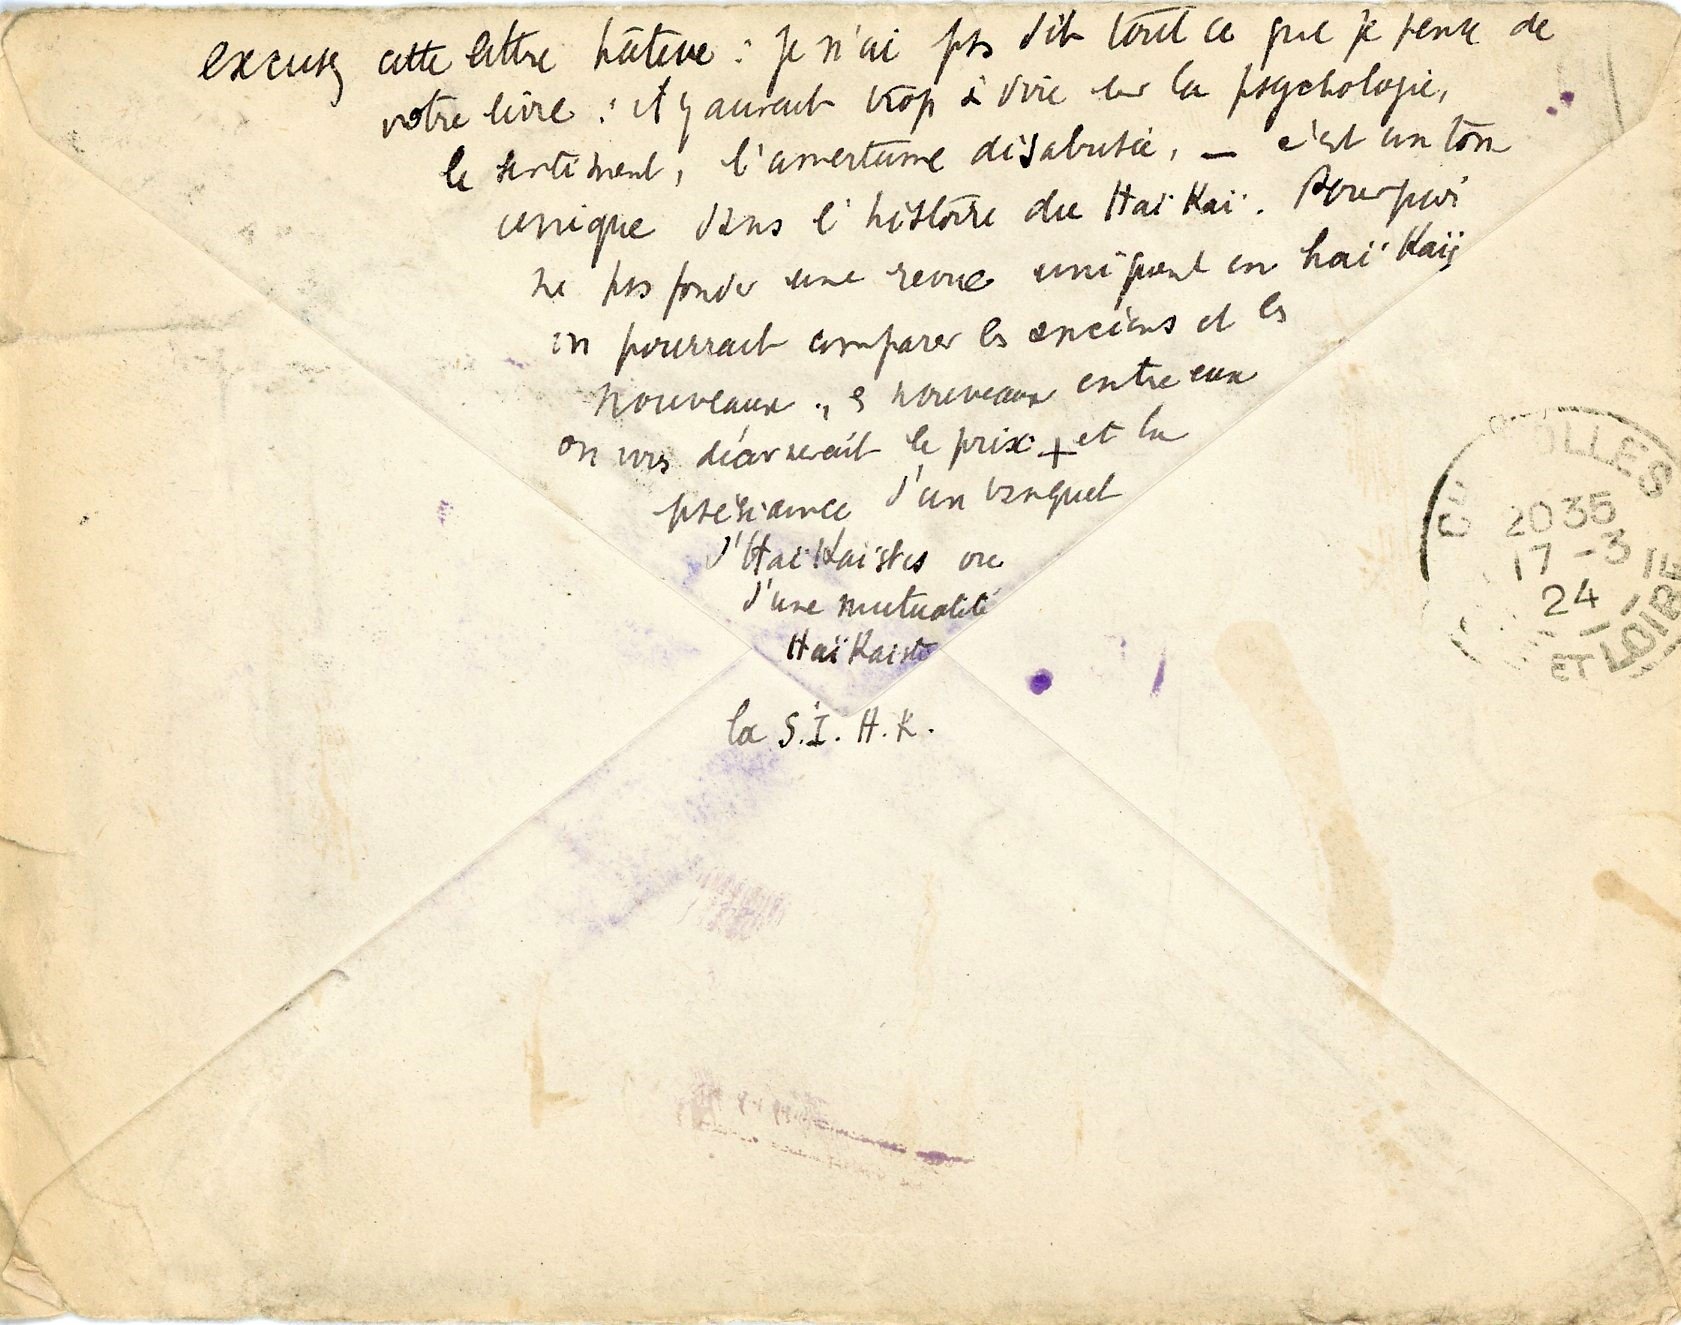 excusez cette lettre hâtive : je n'ai pas dit tout ce que je pense de
votre livre : il y aurait trop à dire sur la psychologie,
le sentiment, l'amertume désabusée, — c'est un ton
unique dans l'histoire du Haï Kaï. Pourquoi
ne pas fonder une revue uniquement en haï Kaïs
on pourrait comparer les anciens et les
nouveaux., les nouveaux entre eux
on vous décernerait le prix + et la
présidence d'un banquet
d'Haï Kaïstes ou
d'une mutualité
Haï Kaiste
la S.I.H.K.
OLLES
2035
17 -3
24
ET LOIRE